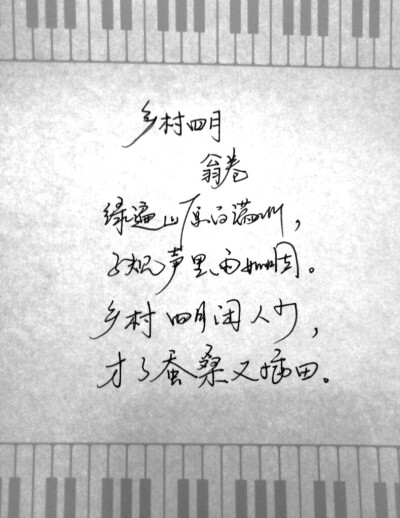 乡村四月
翁卷
绿遍山原白满川，
子规声里雨如烟。
乡村四月闲人少，
才了蚕桑又插田。